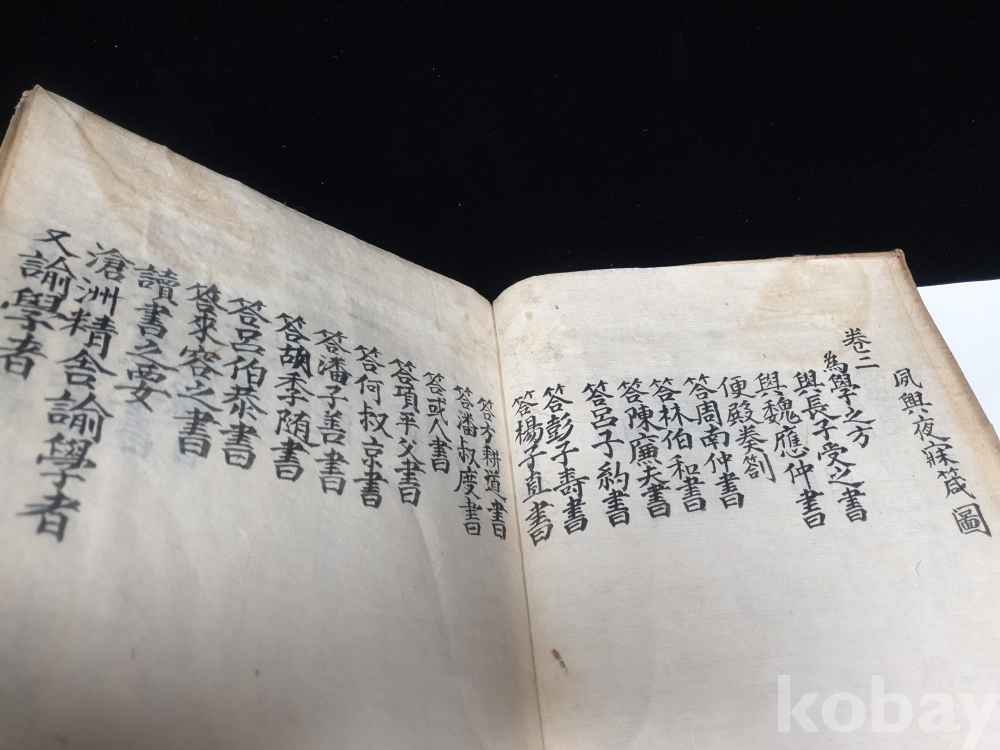 夙興夜寐箴圖
卷二
為學之方
與長子受之書
與魏應仲書
便殿奏劄
答周南仲書
答林伯和書
答陳廉夫書
答呂子約書
答彭子壽書
答楊子直書
答方耕道書
答潘叔度書
答或人書
答項平父書
答何叔京書
答潘子善書
答胡季随書
答呂伯恭書
答宋容之書
讀書之要
滄洲精舍諭學者
又諭學者
kobay